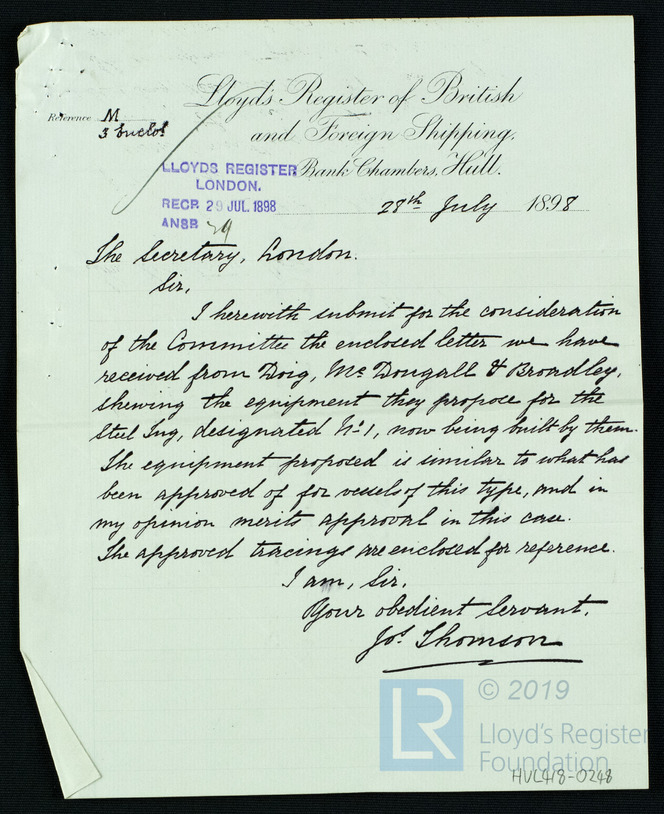 Lloyd's Register of British
and Foreign Shipping.
Reference M
3 Enclos
Bank Chambers, Hull.
LLOYDS REGISTER
LONDON.
RECD 29 JUL. 1898
ANSD 29
28th July 1898
The Secretary, London.
Sir,
I herewith submit for the consideration
of the Committee the enclosed letter we have
received from Doig, McDougall & Broadley,
shewing the equipment they propose for the
Steel Tug, designated No 1, now being built by them.
The equipment proposed is similar to what has
been approved of for vessels of this type, and in
my opinion merits approval in this case.
The approved tracings are enclosed for reference.
I am, Sir,
Your obedient Servant.
Jos Thomson
LR
© 2019
Lloyd's Register
Foundation
HUL418-0248